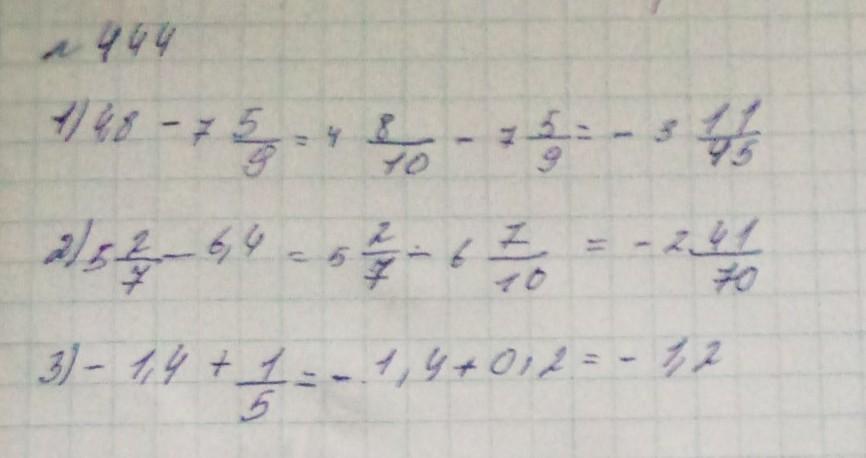 № 444
1) 4,8 - 7 5/9 = 4 8/10 - 7 5/9 = - 3 11/45
2) 5 2/7 - 6,4 = 5 2/7 - 6 7/10 = - 2 41/70
3) - 1,4 + 1/5 = - 1,4 + 0,2 = - 1,2